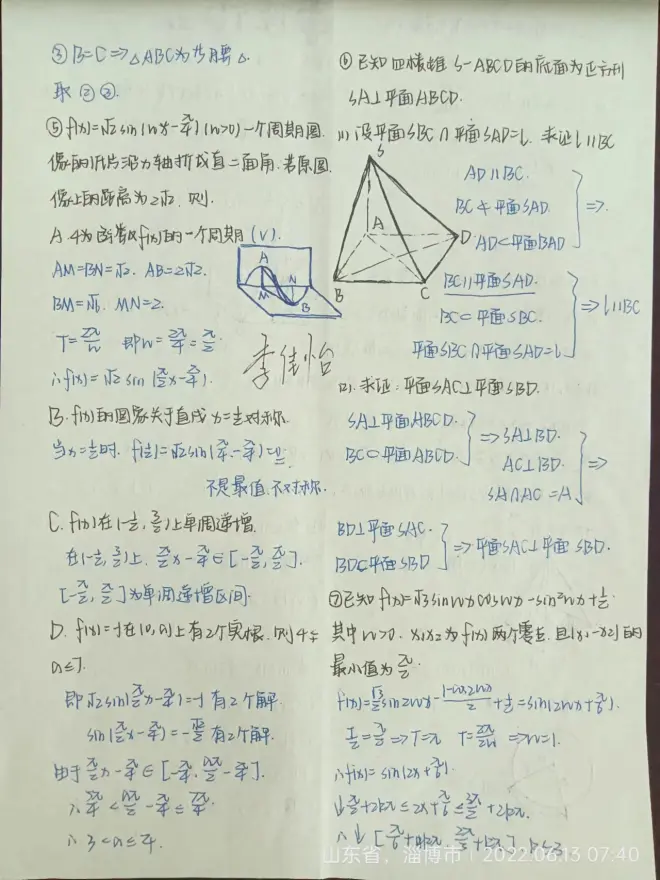 ③ B=C ⇒ △ABC为等腰△.
取 ② ③.
⑤ f(x)=√2 sin(wx-π/4) (w>0) 一个周期图
像的纸片沿x轴折成直二面角, 若原图
像上的距离为2√2, 则
A. 4为函数f(x)的一个周期 (√)
AM=BN=√2. AB=2√2.
BM=√6. MN=2.
T=2π/w 即w=2π/4=π/2
∴f(x)=√2 sin(π/2x-π/4).
B. f(x)的图象关于直线x=1/2对称.
当x=1/2时. f(1/2)=√2sin(π/4-π/4)=0
不是最值, 不对称.
C. f(x)在(-1/2, 3/2)上单调递增.
在(-1/2, 3/2)上. π/2x-π/4∈[-π/2, π/2].
[-π/2, π/2]为单调递增区间.
D. f(x)=-1在(0, a)上有2个实根. 则4≤
a≤7.
即√2sin(π/2x-π/4)=-1有2个解.
sin(π/2x-π/4)=-√2/2有2个解.
由于π/2x-π/4∈[-π/4, aπ/2-π/4].
∴3<a≤4.
A
M
N
B
李佳怡
⑥ 已知四棱锥S-ABCD的底面为正方形
SA⊥平面ABCD.
(1) 设平面SBC∩平面SAD=l. 求证l∥BC
S
A
D
B
C
AD∥BC.
BC⊄平面SAD.
AD⊂平面BAD
⇒.
BC∥平面SAD.
BC⊂平面SBC.
平面SBC∩平面SAD=l
⇒l∥BC
(2). 求证: 平面SAC⊥平面SBD.
SA⊥平面ABCD.
BD⊂平面ABCD.
⇒SA⊥BD.
AC⊥BD.
SA∩AC=A
⇒
BD⊥平面SAC.
BD⊂平面SBD
⇒平面SAC⊥平面SBD.
⑦ 已知f(x)=√3sinwxcoswx-sin²wx+1/2
其中w>0. x₁x₂为f(x)两个零点. 且|x₁-x₂|的
最小值为π/2.
f(x)=√3/2sin2wx-(1-cos2wx)/2+1/2=sin(2wx+π/6).
T/2=π/2⇒T=π T=2π/2w ⇒w=1.
∴f(x)=sin(2x+π/6).
↓π/2+2kπ≤2x+π/6≤3π/2+2kπ.
山东省, 淄博市 | 2022.06.13 07:40